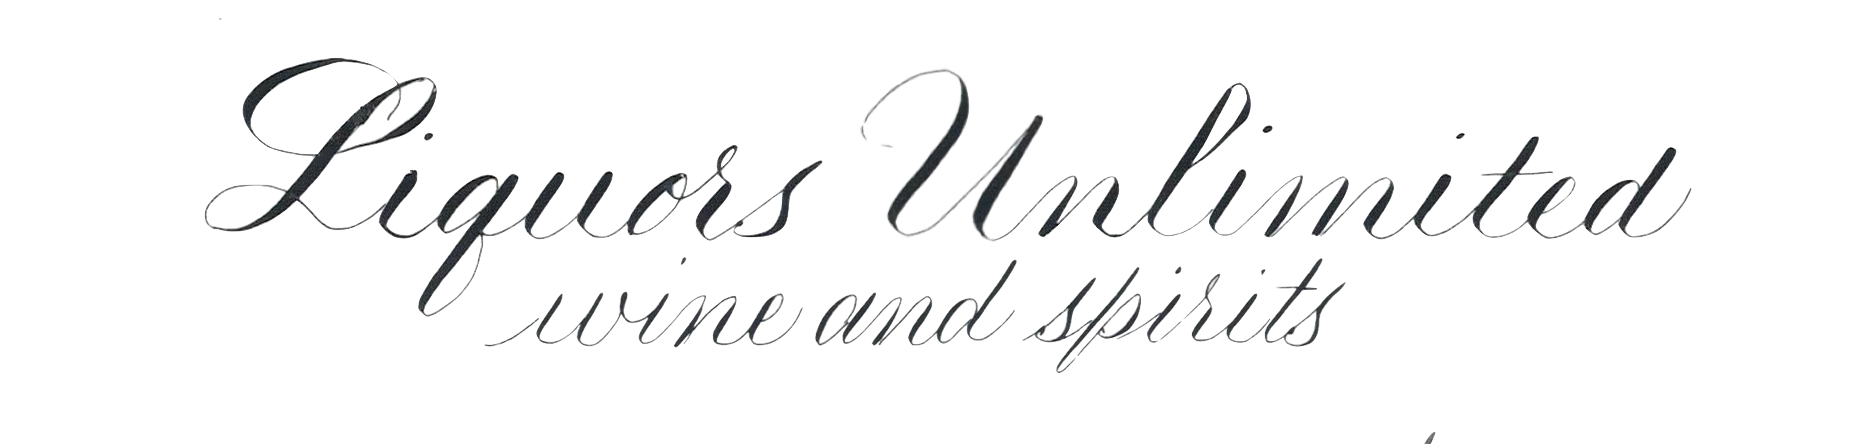 Liquors Unlimited
wine and spirits